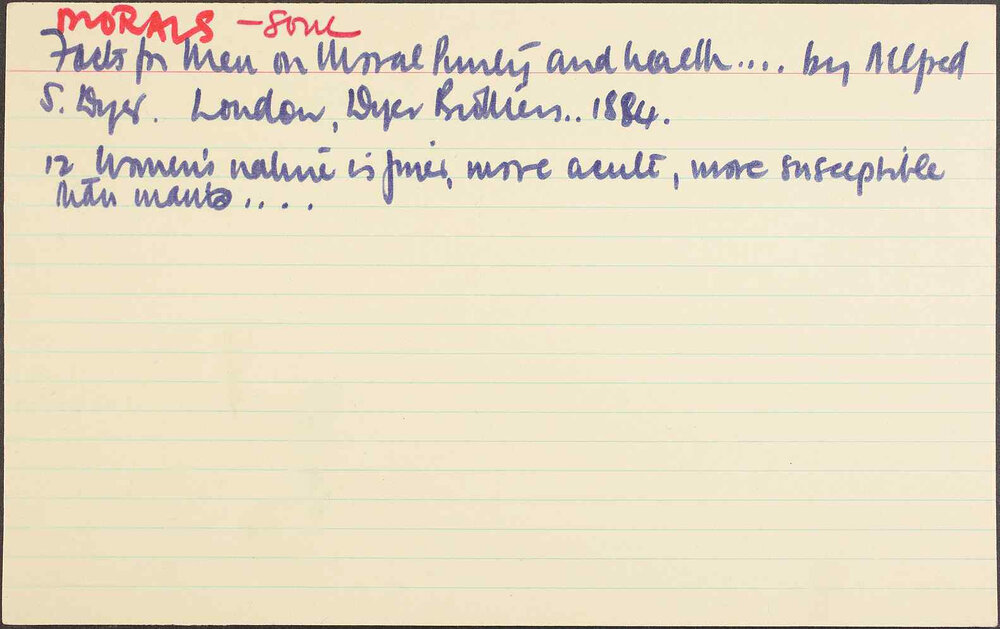 MORALS - SOUL
Facts for Men on Moral Purity and health.... by Alfred
S. Dyer. London, Dyer Brothers.. 1884.
12 Women's nature is finer, more acute, more susceptible
than mans....